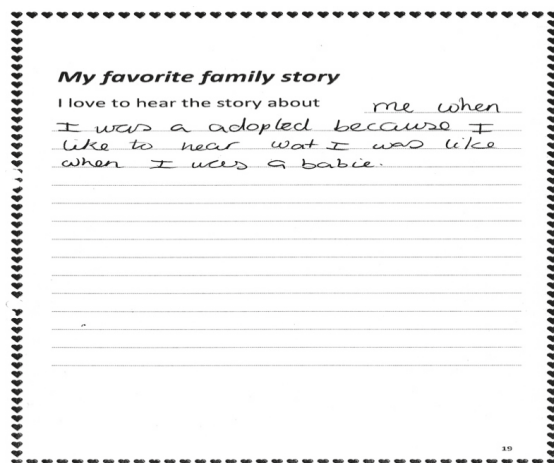 My favorite family story
I love to hear the story about me when
I was a adopted because I
like to hear wat I was like
when I was a babie.
19